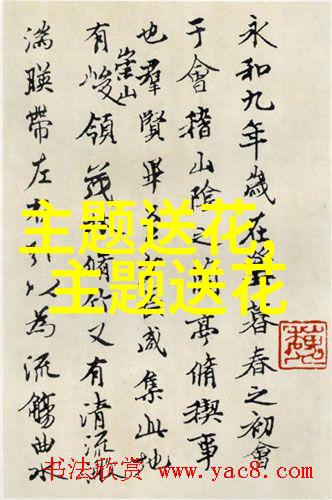 永和九年歲在暮春之初會
于會稽山陰之亭脩稧事
也羣賢畢咸集此地
有崇山峻領茂脩竹又有清流激
湍暎帶左引以為流觴曲水
主题送花,
主题送花
书法欣赏 www.yac8.com